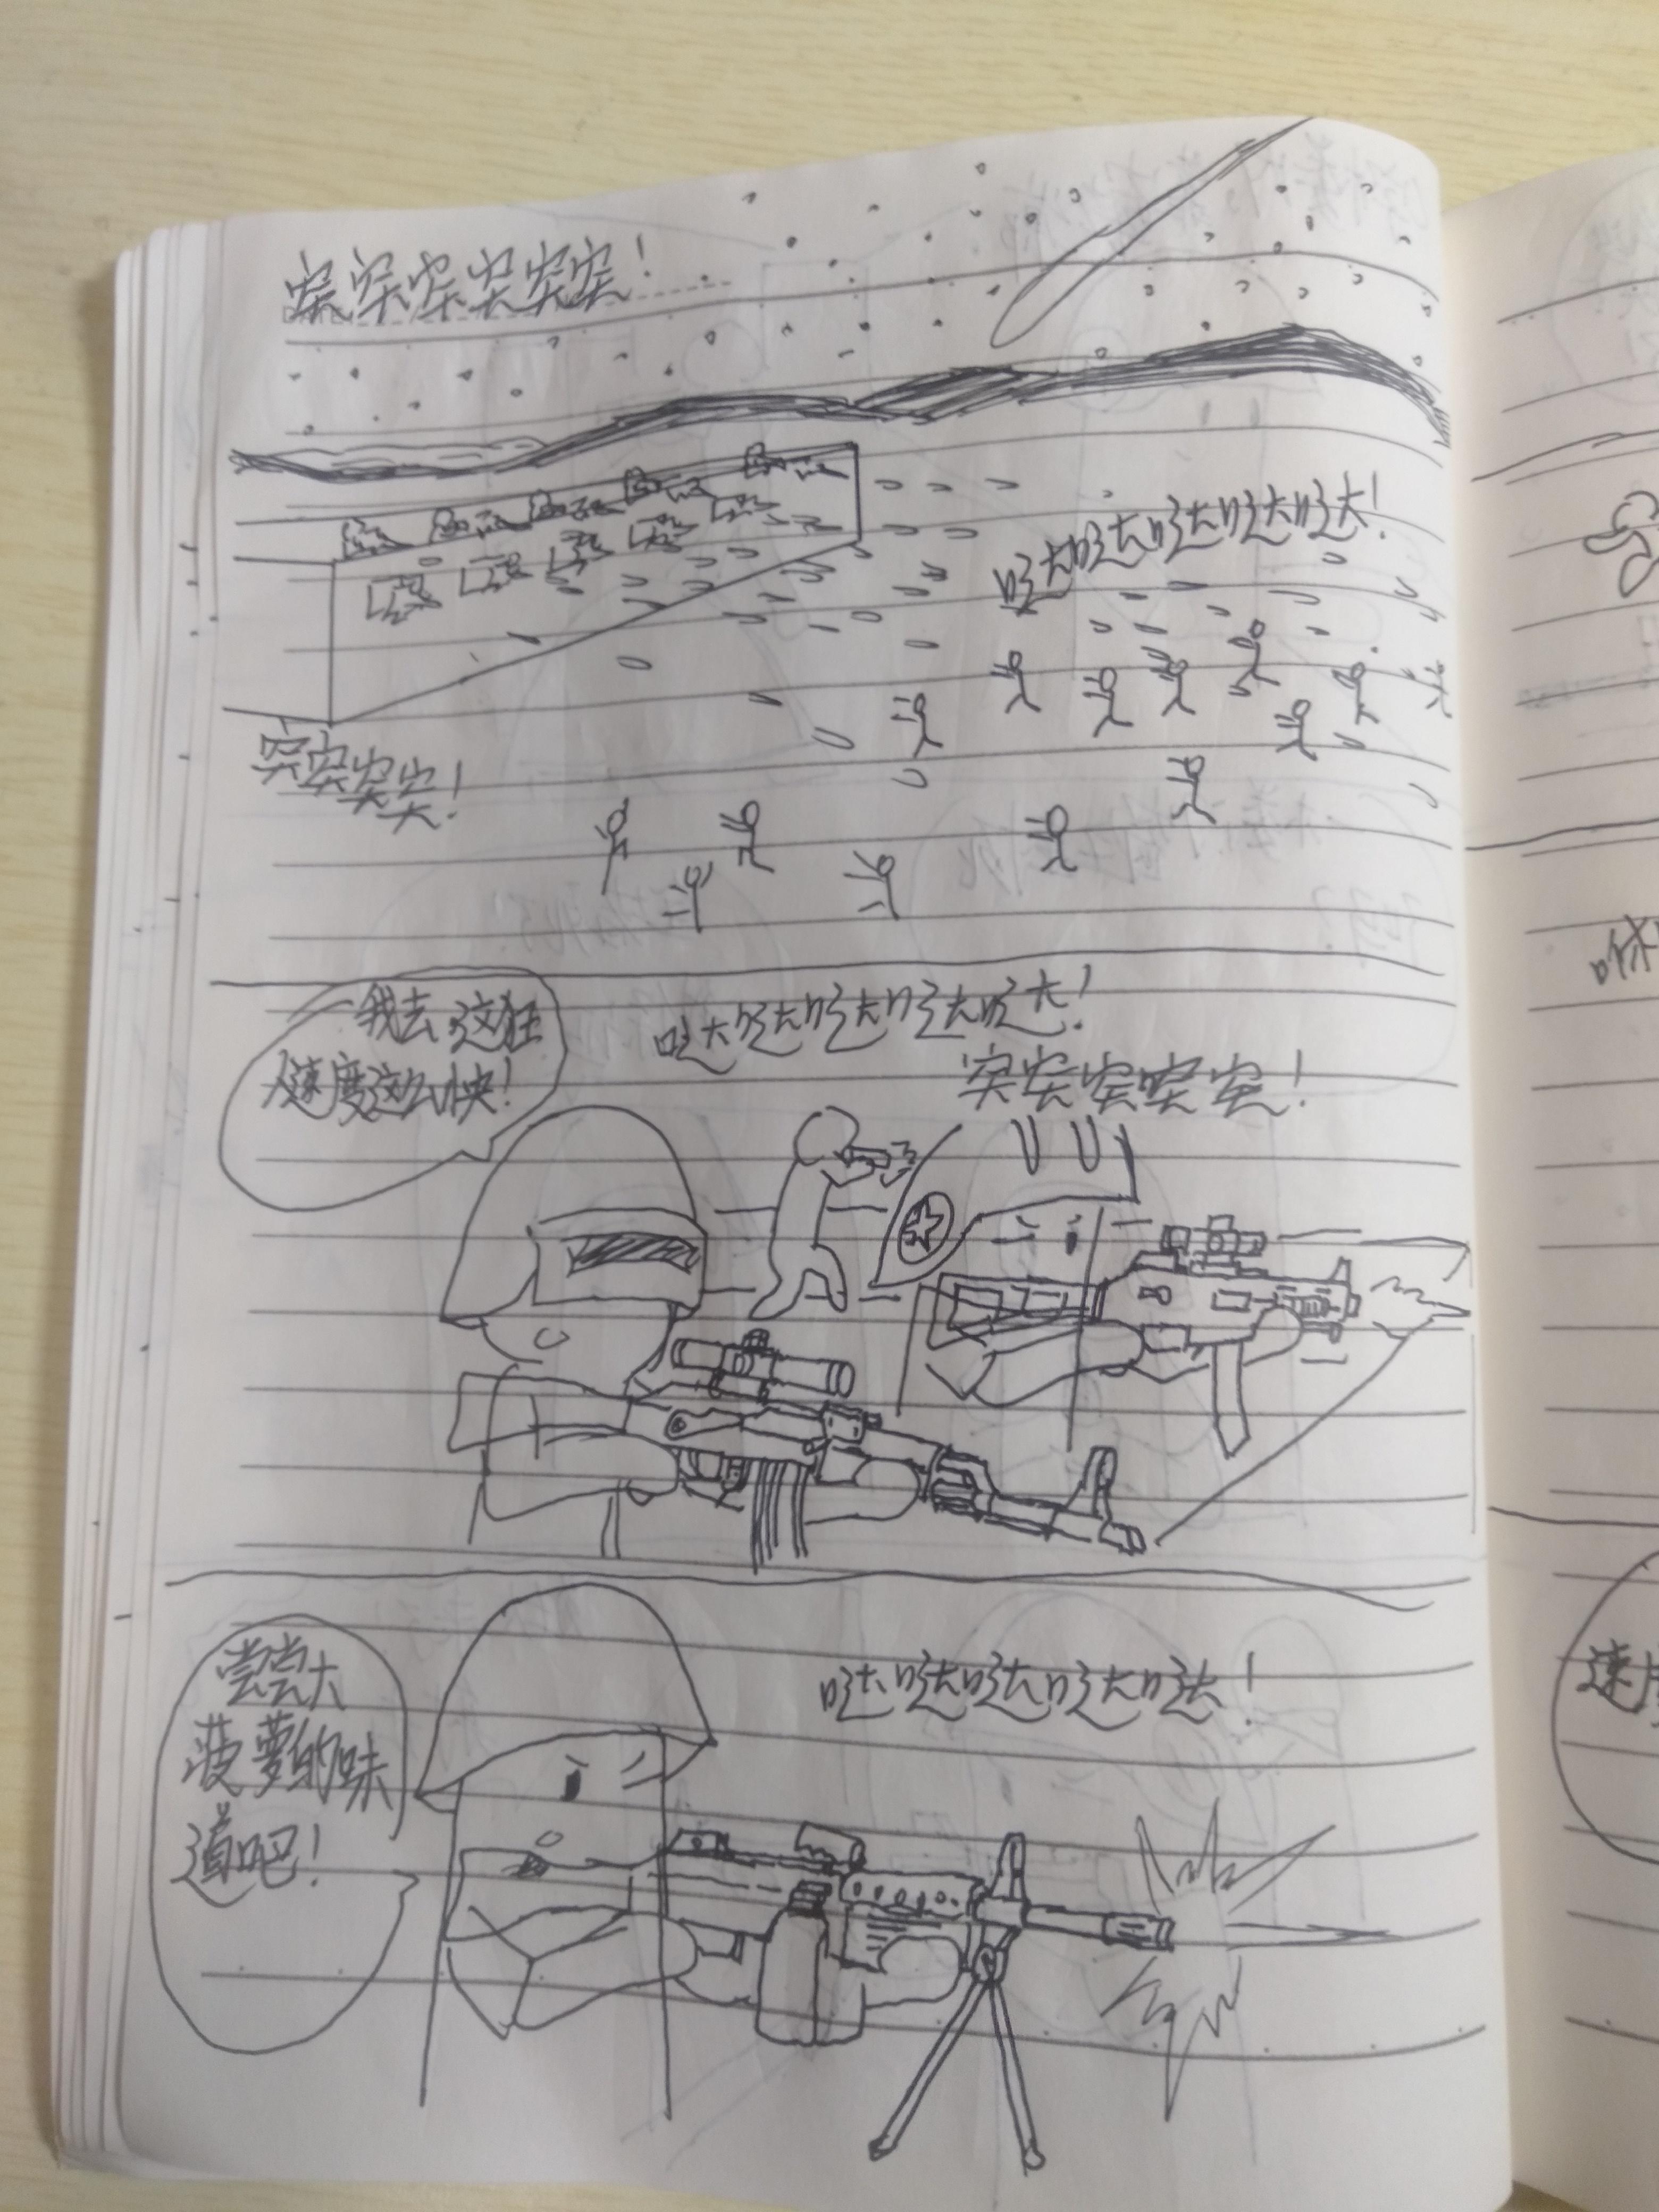 突突突突突突!
哒哒哒哒哒!
突突突突!
我去这狂
人速度这么快!
哒哒哒哒哒!
突突突突突!
尝尝大
菠萝的味
道吧!
哒哒哒哒哒!